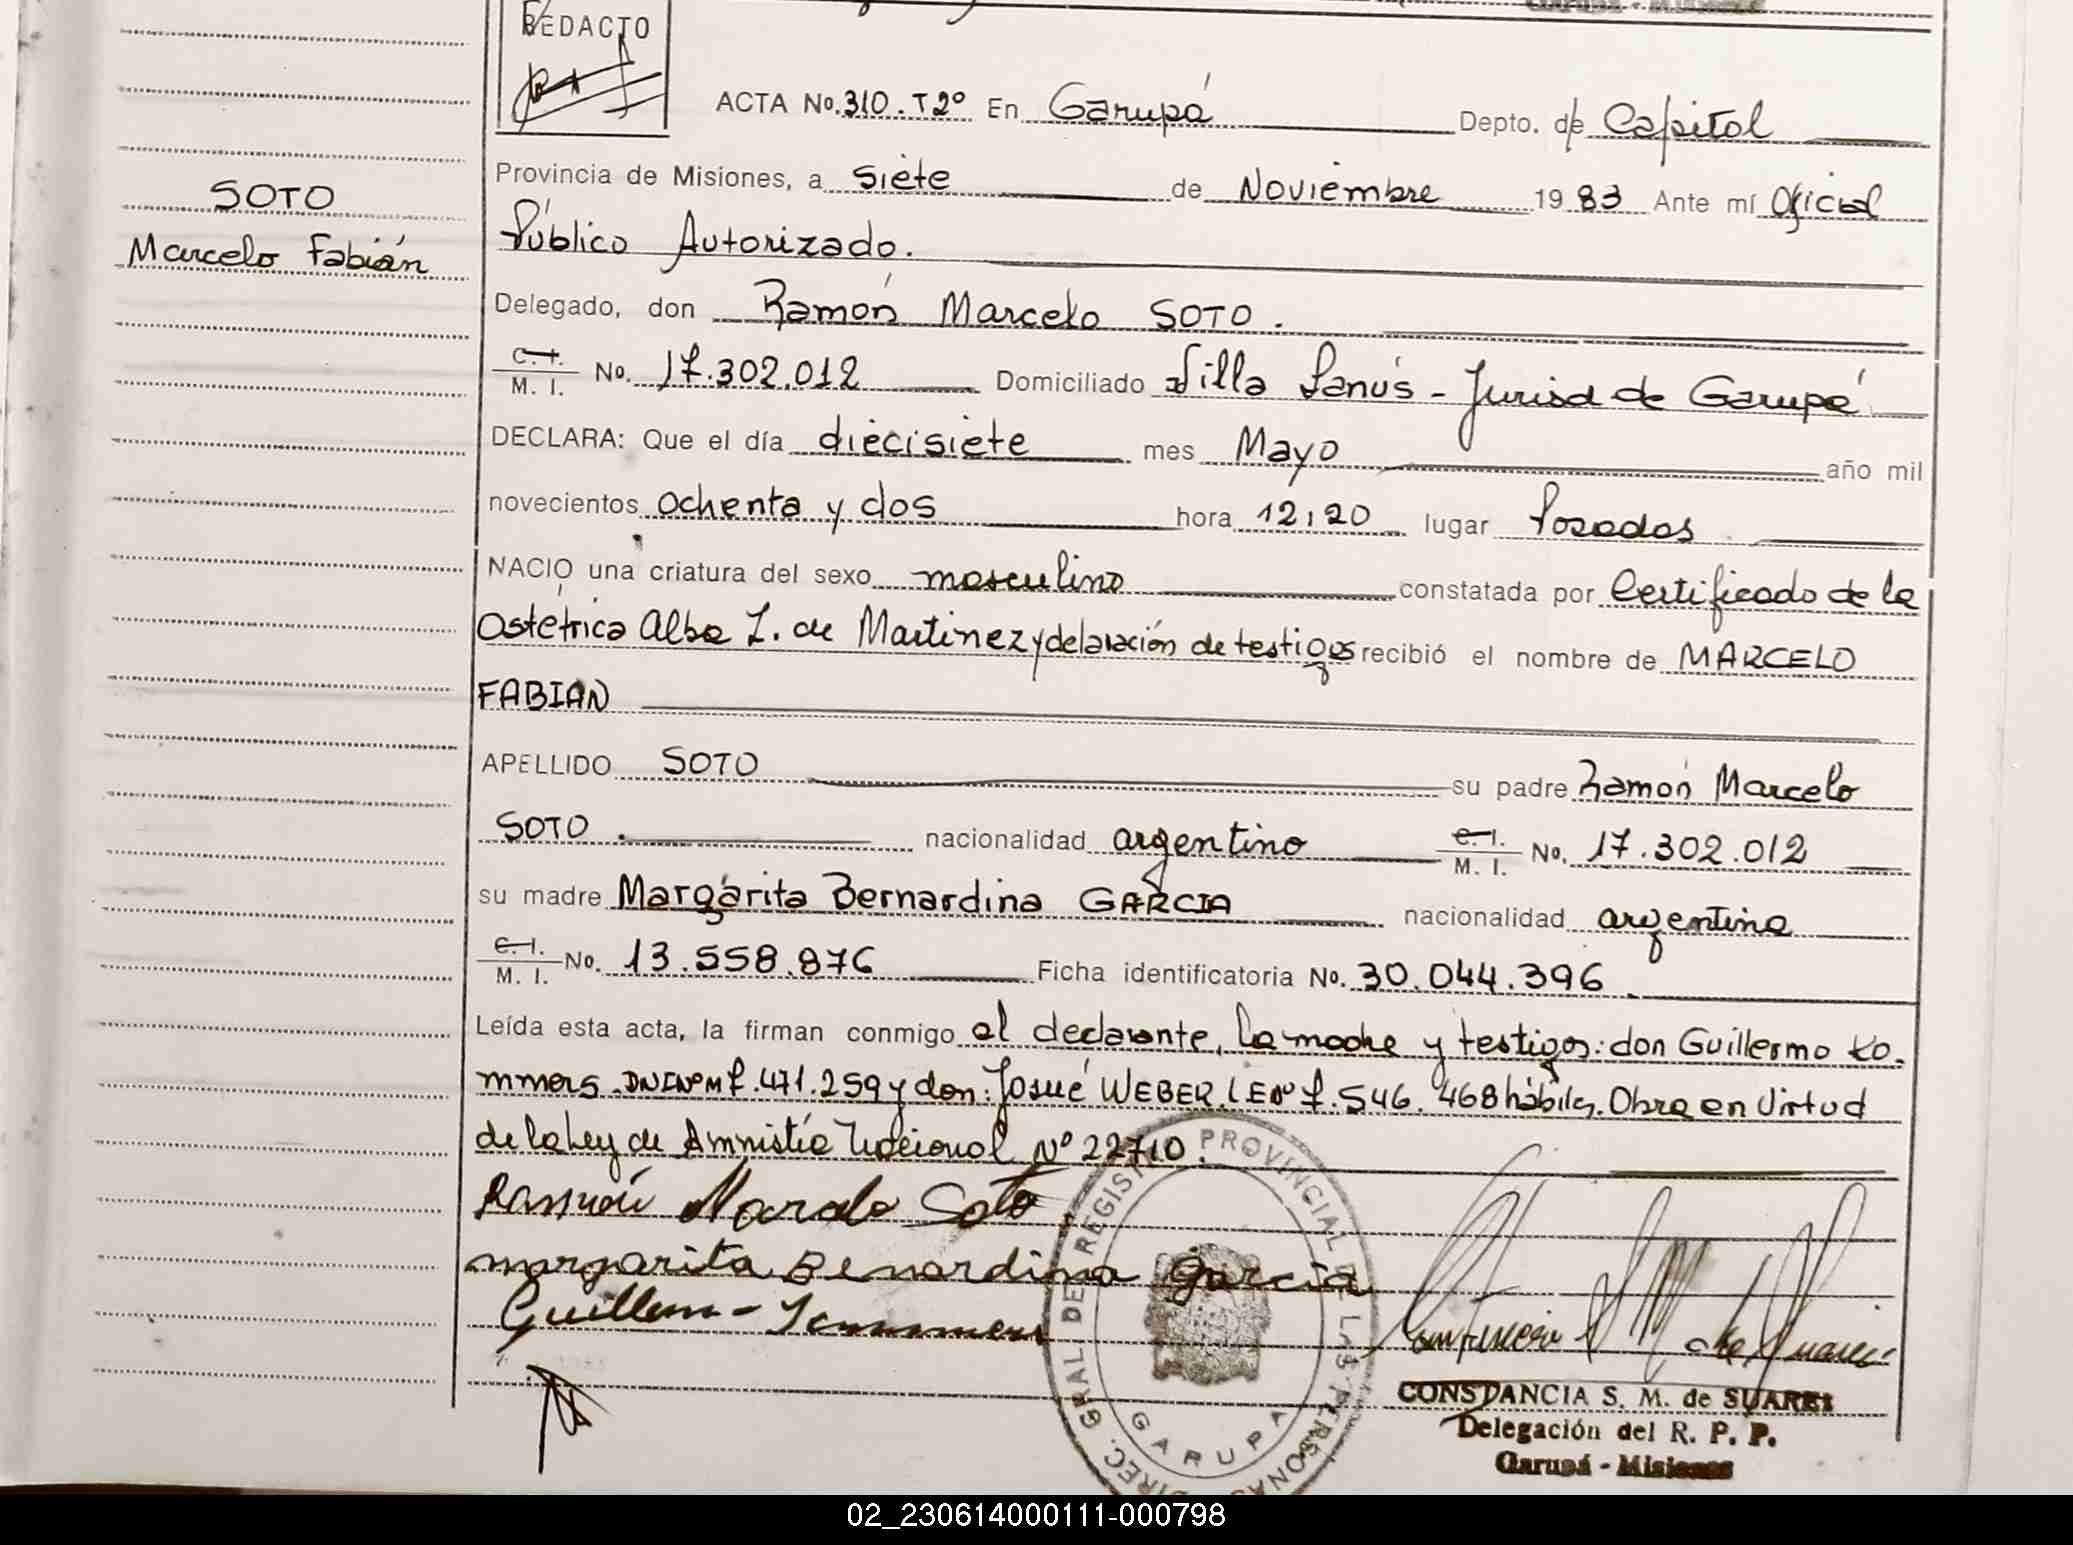 REDACTO
ACTA No. 310. T2º En Garupá Depto. de Capital
Provincia de Misiones, a siete de Noviembre 1983 Ante mí Oficial
SOTO
Público Autorizado.
Marcelo Fabián
Delegado, don Ramón Marcelo SOTO.
C. I. / M. I. No. 17.302.012 Domiciliado Villa Lanús - Jurisd de Garupá
DECLARA: Que el día diecisiete mes Mayo año mil
novecientos ochenta y dos hora 12,20 lugar Posadas
NACIO una criatura del sexo masculino constatada por Certificado de la
Ostétrica Alba L. de Martinez y delaración de testigos recibió el nombre de MARCELO
FABIAN
APELLIDO SOTO su padre Ramón Marcelo
SOTO. nacionalidad argentino C. I. / M. I. No. 17.302.012
su madre Margarita Bernardina GARCIA nacionalidad argentina
C. I. / M. I. No. 13.558.876 Ficha identificatoria No. 30.044.396
Leída esta acta, la firman conmigo el declarante, la madre y testigos: don Guillermo Ko-
mmers. DNI Nº M 7.471.259 y don: Josué WEBER. LE Nº 7.546.468 hábiles. Obra en virtud
de la Ley de Amnistía Nº 22710.
Ramón Marcelo Soto
margarita Benardina garcia
DIREC. GRAL. DE REGISTRO PROVINCIAL DE LAS PERSONAS
GARUPA
CONSTANCIA S. M. de SUAREZ
Delegación del R. P. P.
Garupá - Misiones
02_230614000111-000798